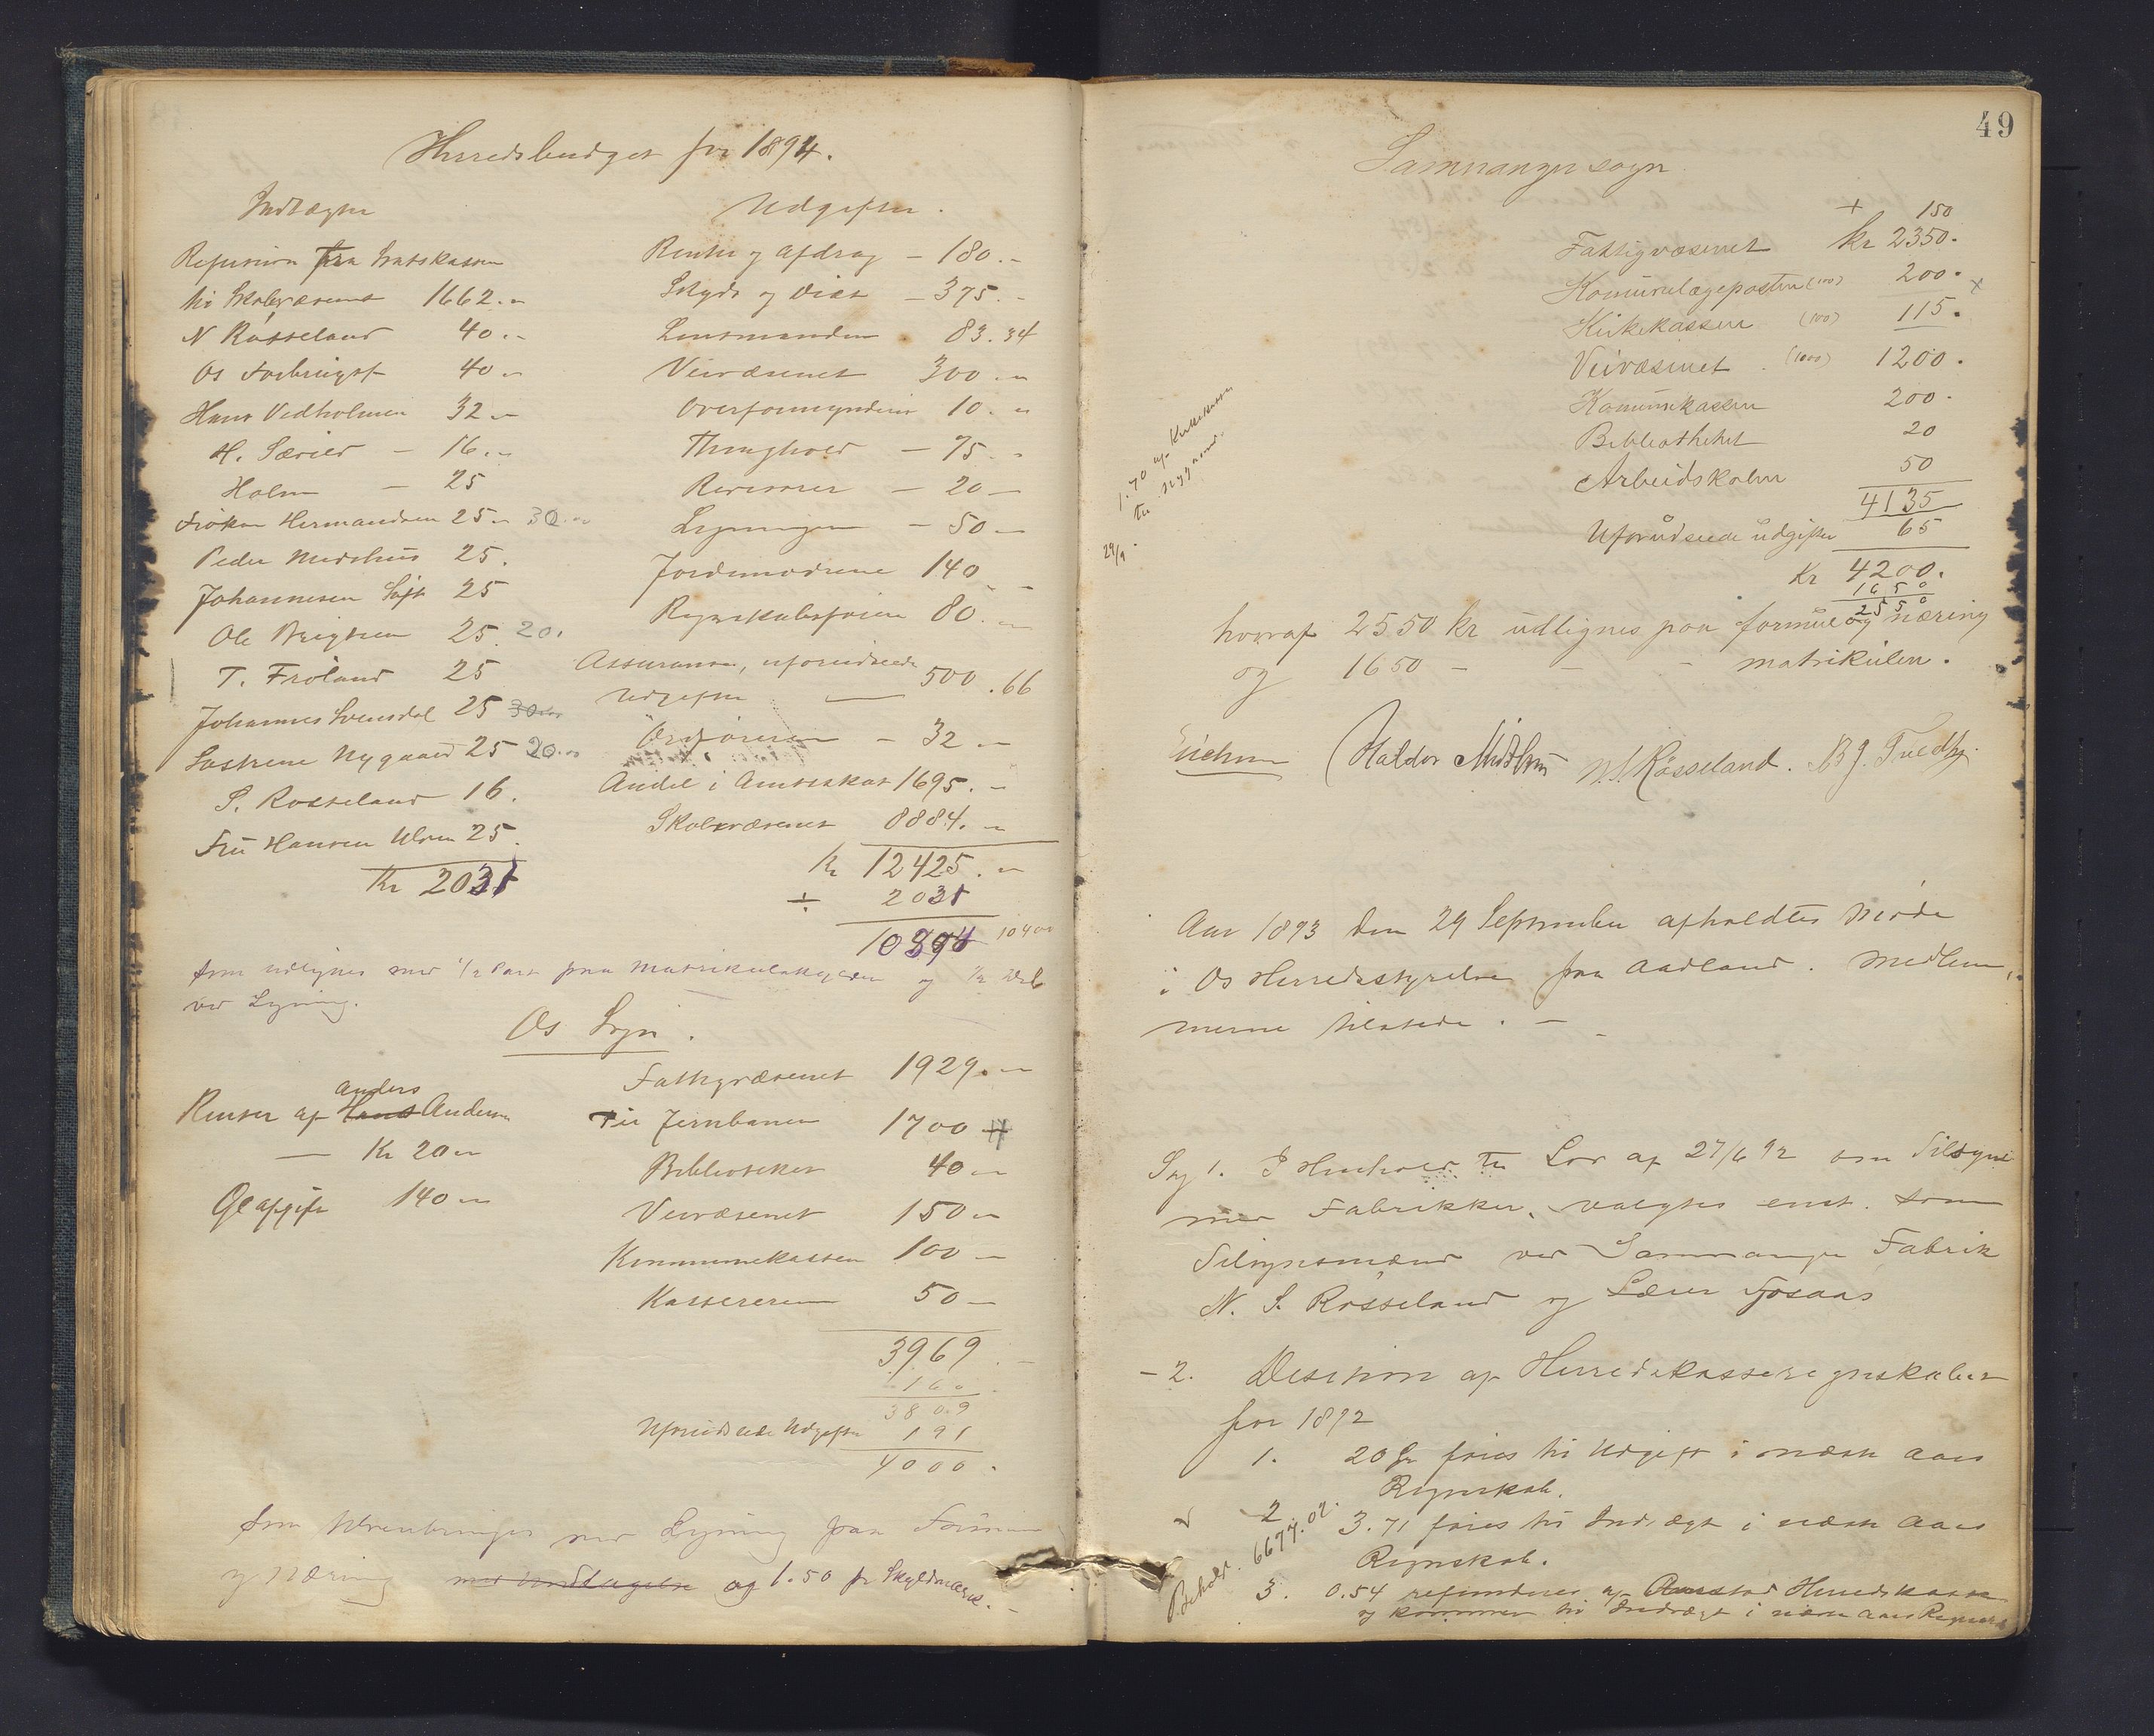 Herredsbudget for 1894.
Indtægter
Refusion fra Statskassen
til Skolevæsenet 1662.-
N Røsseland 40.-
Os Forbrugsf 40 -
Hans Vedholmen 32 -
H. Særvold - 16.-
Holm - 25
Frøken Hermandsen 25 - 30.-
Peder Midthus 25.
Johannesen 25
Ole Brigtsen 25. 20.
T. Frøland 25
Johannes Svensdal 25 30
Søstrene Nygaard 25 20.-
S. Røsseland 16.
Fru Hansen Ulven 25.
Kr 2031
Udgifter.
Renter og afdrag - 180.-
Skyds og Diæt - 375.-
Lensmanden 83.34
Veivæsenet 300.-
Overformynderi 10.-
Thinghold - 75.-
Revisorer - 20 -
Ligningen - 50 -
Jordmødrene 140 -
Regnskabsførsen 80.-
Assurance, uforudseede
Udgifter - 500.66
Ordføreren - 32 -
Andel i Amtsskat 1695.-
Skolevæsenet 8884.-
Kr 12425.-
÷ 2031
10394 10400
som udlignes med 1/2 Part paa Matrikulskylden og 1/2 Del
ved Ligning.
Os Sogn.
Anders
Renter af Hans Andersen
- Kr 20 -
Ølafgift 140 -
Fattigvæsenet 1929.-
Til Jernbanen 1700
Biblioteket 40 -
Veivæsenet 150 -
Kommunekassen 100 -
Kassereren 50 -
3969.-
160
3809
Uforudseede Udgifter 191
4000.
som tilveiebringes ved Ligning paa Formue
og Næring med Undtagelse og 1.50 pr Skyldmark. -
49
Samnanger sogn
+ 150
Fattigvæsenet kr 2350.
Komunelægeposten (100) 200. x
Kirkekassen (100) 115.
Veivæsenet (1000) 1200.
Komunekassen 200.
Bibliotheket 20
Arbeidskolen 50
4135
Uforudseede udgifter 65
Kr 4200.
1650
2550
hvoraf 2550 kr udlignes paa formue og næring
og 1650 - - - matrikulen.
1.70 af Kirkekassen
til Nygaard.
29/9.
Haldor Midthun N. S. Røsseland.
Aar 1893 den 29 September afholdtes Møde
i Os Herredsstyrelse paa Aadland. Medlem,,
merne tilstede. -
Sag 1. I Henhold til Lov af 27/6 92 om Tilsyne
med Fabrikker, valgtes enst. som
Tilsynsmænd ved Samnanger Fabrik
N. S. Røsseland og Lærer Tøsaas
- 2. Desision af Herredskasseregnskabet
for 1892
1. 20 kr føres til Udgift i næste Aars
Regnskab.
2 3.71 føres til Indtægt i næste Aars
Regnskab.
Beholdt. 6677.02.
3. 0.54 refunderes af Herredskassen
og kommer til Indtægt i næste Aars Regnskab